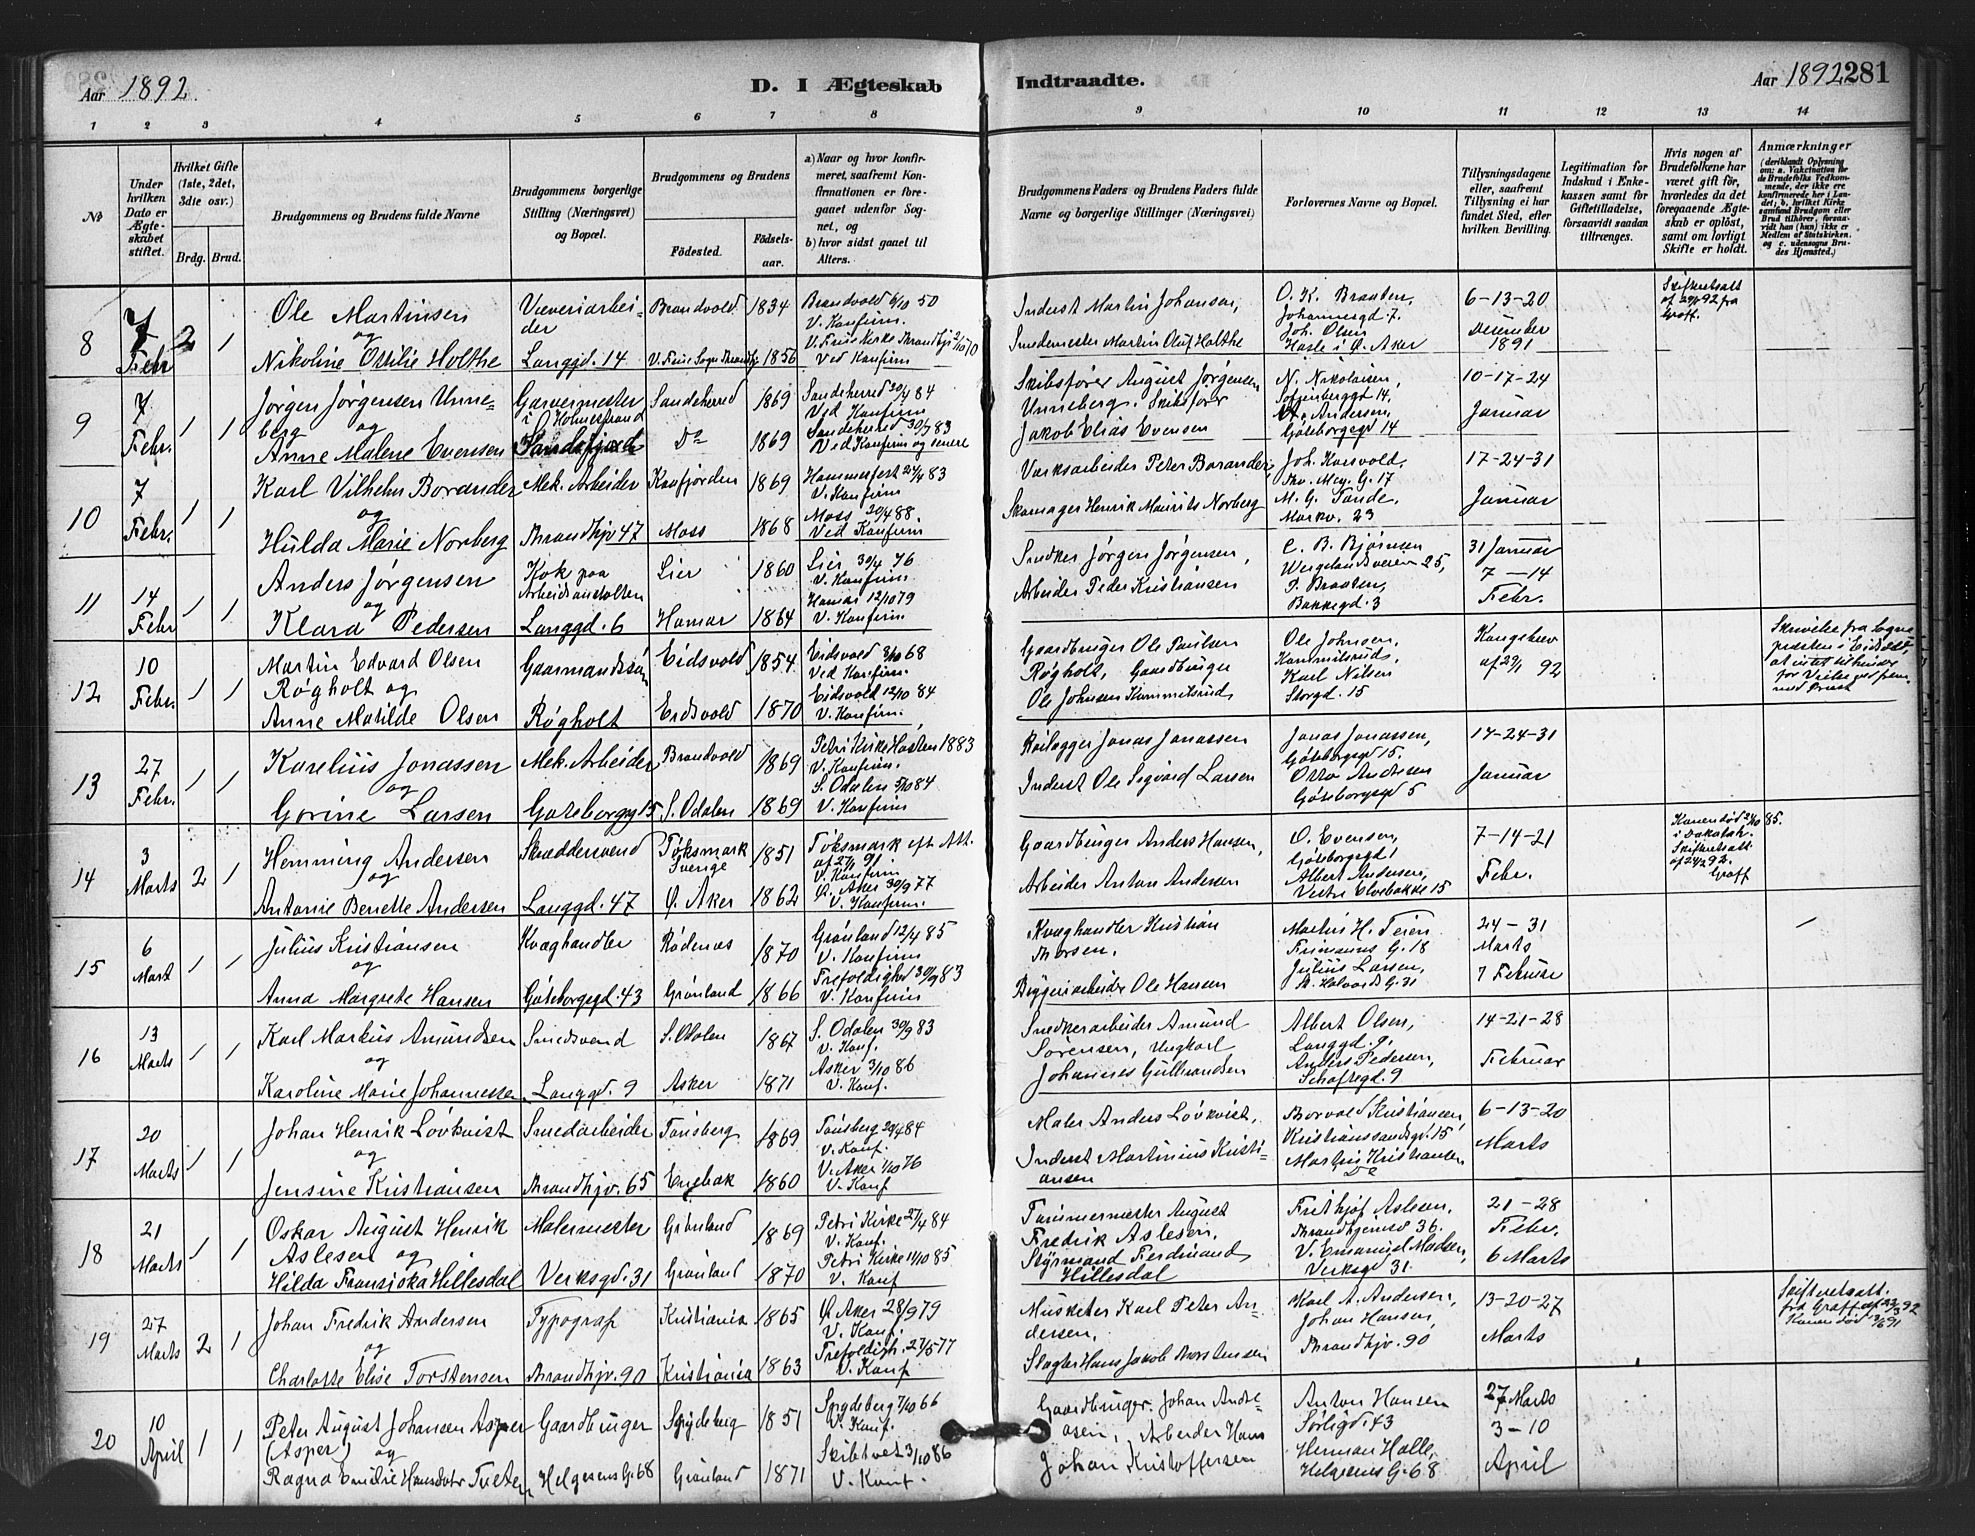 Aar 1892.
D. I Ægteskab Indtraadte.
Aar 1892 281
1 2 3 4 5 6 7 8 9 10 11 12 13 14
No
Under hvilken Dato er Ægteskabet stiftet.
Hvilket Gifte (1ste, 2det, 3die osv.)
Brdg. Brud.
Brudgommens og Brudens fulde Navne
Brudgommens borgerlige Stilling (Næringsvei) og Bopæl.
Brudgommens og Brudens
Fødested.
Fødselsaar.
a) Naar og hvor konfirmeret, saafremt Konfirmationen er foregaaet udenfor Sognet, og
b) hvor sidst gaaet til Alters.
Brudgommens Faders og Brudens Faders fulde Navne og borgerlige Stillinger (Næringsvei)
Forlovernes Navne og Bopæl.
Tillysningsdagene eller, saafremt Tillysning ei har fundet Sted, efter hvilken Bevilling.
Legitimation for Indskud i Enkekassen samt for Giftetilladelse, forsaavidt saadan tiltrænges.
Hvis nogen af Brudefolkene har været gift før, hvorledes da det foregaaende Ægteskab er opløst, samt om lovligt Skifte er holdt.
Anmærkninger
(deriblandt Oplysning om: a. Vaccination for de Brudefolks Vedkommende, der ikke ere konfirmerede her i Landet, b. hvilket Kirkesamfund Brudgom eller Brud tilhører, forsaavidt han (hun) ikke er Medlem af Statskirken, og c. udensogns Brudes Hjemsted.)
8 7 Febr 2 1
Ole Martinsen
og
Nikoline Ottilie Holthe
Væveriarbeider
Langgd. 14
Brandvold 1834
V. Frue Sogn Trondhj 1856
Brandvold 6/10 50
V. Konfirm.
V. Frue Kirke Trondhj 2/10 70
Ved Konfirm
Inderst Martin Johansen,
Smedemester Martin Oluf Holthe
O. K. Braaten,
Johannesgd. 7.
Joh. Olsen
Hasle i Ø. Aker
6-13-20
December
1891
Skifteretsatt
af 29/1 92 fra
Graff.
9 7 Febr. 1 1
Jørgen Jørgensen Unneberg
og
Anne Malene Evensen
Garvermester
i Holmestrand
Sandefjord
Sandeherred 1869
Do 1869
Sandeherred 20/4 84
Ved Konfirm
Sandeherred 30/9 83
Ved Konfirm og senere
Skibsfører August Jørgensen
Unneberg. Skibsfører
Jakob Elias Evensen
N. Nikolaisen,
Sofienberggd 14,
A. Andersen,
Göteborggd 14
10-17-24
Januar
10 7 Febr. 1 1
Karl Vilhelm Borander
og
Hulda Marie Norberg
Mek. Arbeider
Trondhjv 47
Kaafjorden 1869
Moss 1868
Hammerfest 24/4 83
V. Konfirm
Moss 20/4 88
Ved Konfirm
Værksarbeider Peter Borander,
Skomager Henrik Maurits Norberg
Joh. Korsvold,
Thv. Mey. G. 17
M. G. Tande,
Markv. 23
17-24-31
Januar
11 14 Febr 1 1
Anders Jørgensen
og
Klara Pedersen
Kok paa
Arbeidsanstalten
Langgd. 6
Lier 1860
Hamar 1864
Lier 30/4 76
V. Konfirm.
Hamar 12/10 79
V. Konfirm
Snedker Jørgen Jørgensen,
Arbeider Peder Kristiansen
C. B. Bjørnsen
Wergelandsveien 25,
P. Braaten,
Bakkegd. 3
31 Januar
7-14
Febr.
12 10 Febr. 1 1
Martin Edvard Olsen
Røgholt og
Anne Matilde Olsen
Gaardmandssøn
Røgholt
Eidsvold 1854.
Eidsvold 1870
Eidsvold 3/10 68
Ved Konfirm
Eidsvold 12/10 84
V. Konfirm.
Gaardbruger Ole Paulsen
Røgholt, Gaardbruger
Ole Johnsen Kummelsrud,
Ole Johnsen,
Kummilsrud,
Karl Nilsen
Storgd. 15
Kongebrev
af 29/1 92
Skrivelse fra Sogne
presten i Eidsvold,
at intet til hinder
for Vielse
13 27 Febr. 1 1
Karelius Jonassen
og
Gorine Larsen
Mek. Arbeider
Gøteborggd 15
Brandvold 1869
S. Odalen 1869
Petri Kirke Høsten 1883
V. Konfirm.
S. Odalen 5/10 84
V. Konfirm
Rørlægger Jonas Jonassen
Inderst Ole Sigvard Larsen
Jonas Jonassen,
Göteborggd 15.
Otto Andersen
Göteborggd 5
17-24-31
Januar
14 3 Marts 2 1
Hemming Andersen
og
Antonie Benette Andersen
Skræddersvend
Langgd. 47
Töksmark
Sverige 1851
Ø. Aker 1862
Töksmark eft Att.
af 27/1 91
V. Konfirm
Ø. Aker 30/9 77
V. Konfirm.
Gaardbruger Anders Hansen,
Arbeider Anton Andersen
O. Evensen,
Göteborggd 1
Albert Andersen,
Vestre Elvebakke 15
7-14-21
Febr.
Konen død 21/10 85.
i Dakotah.
Skifteretsatt.
af 24/2 92.
Graff
15 6 Mart 1 1
Julius Kristiansen
og
Anna Margrete Hansen
Kvæghandler
Göteborggd. 43
Rødenes 1870
Grønland 1866
Grønland 12/4 85
V. Konfirm
Trefoldighed 30/9 83
V. Konfirm
Kvæghandler Kristian
Thorsen.
Byggeriarbeider Ole Hansen
Martin H. Teien
Frimanns G. 18
Julius Larsen,
St. Halvards G. 31
24-31
Marts
7 Februar
16 13 Marts 1 1
Karl Markus Amundsen
og
Karoline Marie Johannessen
Smedsvend
Langgd. 9
S. Odalen 1867
Asker 1871
S. Odalen 30/9 83
V. Konf.
Asker 3/10 86
V. Konf.
Snedkerarbeider Amund
Sørensen, Ungkarl
Johannes Gulbrandsen
Albert Olsen,
Langgd. 9.
Anders Pedersen,
Schaftegd. 9
14-21-28
Februar
17 20 Marts 1 1
Johan Henrik Lövkvist
og
Jensine Kristiansen
Smedarbeider
Trondhjv. 65
Tønsberg 1869
Enebak 1860
Tønsberg 20/4 84
V. Konf.
V. Aker 1/10 76
V. Konf
Maler Anders Lövkvist,
Inderst Martinius Kristiansen
Borvald Kristiansen
Kristianssandsgd. 15
Martin Kristiansen
Do
6-13-20
Marts
18 21 Marts 1 1
Oskar August Henrik
Aslesen og
Hilda Fransiska Hillesdal
Malermester
Verksgd. 31
Grønland 1869
Grønland 1870
Petri Kirke 27/4 84
V. Konf.
Petri Kirke 11/10 85
V. Konf
Tømmermester August
Fredrik Aslesen,
Styrmand Ferdinand
Hillesdal
Frithjof Aslesen,
Trondhjemsv 36.
V. Emanuel Madsen,
Verksgd 31.
21-28
Febr.
6 Marts
19 27 Marts 2 1
Johan Fredrik Andersen
og
Charlotte Elise Torstensen
Typograf
Trondhjv. 90
Kristiania 1865
Kristiania 1863
Ø. Aker 28/9 79
V. Konf.
Trefoldigh. 27/5 77
V. Konf
Musketer Karl Peter Andersen,
Slagter Hans Jakob Thorstensen
Karl A. Andersen,
Johan Hansen,
Trondhjv. 90
13-20-27
Marts
Skifteretsatt.
fra Graff af 23/3 92
Konen død 19/6 91
20 10 April 1 1
Peter August Johansen Asper
(Asper) og
Ragna Emilie Hansdatter Tveten
Gaardbruger
Helgesens G. 68
Spydeberg 1851
Grønland 1871
Spydeberg 7/10 66
V. Konf.
Skibtvet 3/10 86
V. Konf.
Gaardbruger Johan Andreasen,
Arbeider Hans
Johan Kristoffersen
Anton Hansen
Sørligd. 43
Herman Halle,
Helgesens G. 68
27 Marts
3-10
April